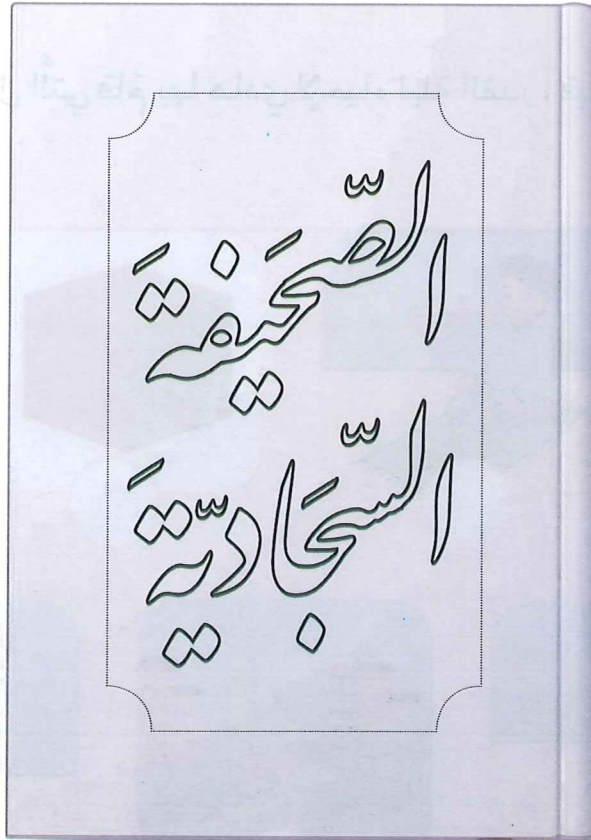 الصَّحَيفَةَ
السَّجَاديَّةَ